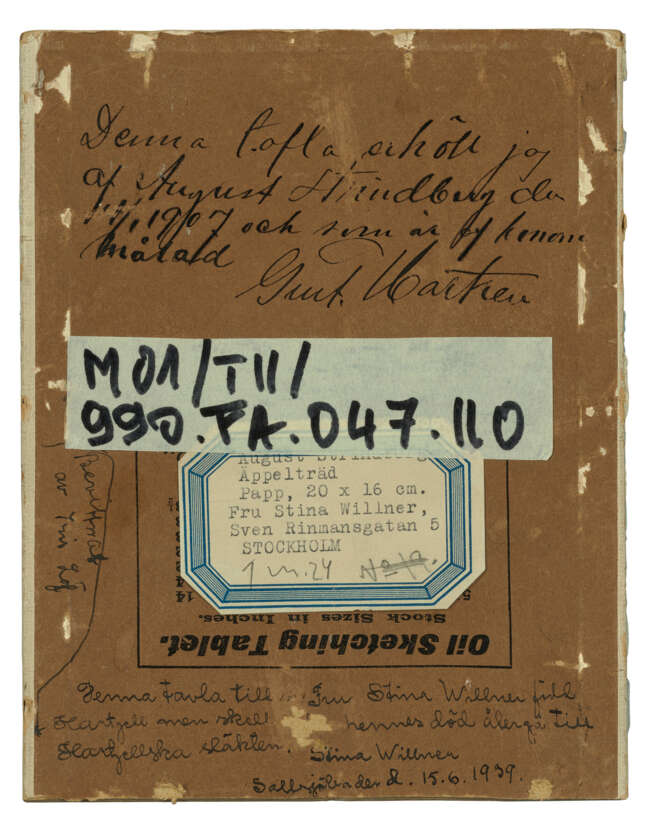 Denna tafla, erhöll jag
af August Strindberg den
1907 och som är af honom
målad
Gust. Hartzell
M01/T11/
990.FA.047.110
August Strindberg
Äppelträd
Papp, 20 x 16 cm.
Fru Stina Willner,
Sven Rinmansgatan 5
STOCKHOLM
No 19.
14
14
5
Stock Sizes in Inches.
Oil Sketching Tablet.
av
Denna tavla till Fru Stina Willner född
Hartzell men skall hennes död återgå till
Hartzellska släkten. Stina Willner
d. 15.6.1939.